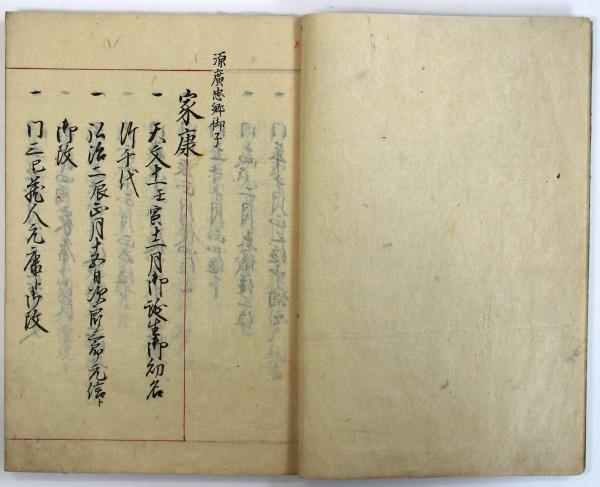 源廣忠郷御子
家康
一 天文十一壬寅十二月御誕生御幼名
竹千代
一 弘治二辰正月十五日次郎三郎元信ト
御改
一 同三巳蔵人元康ト御改